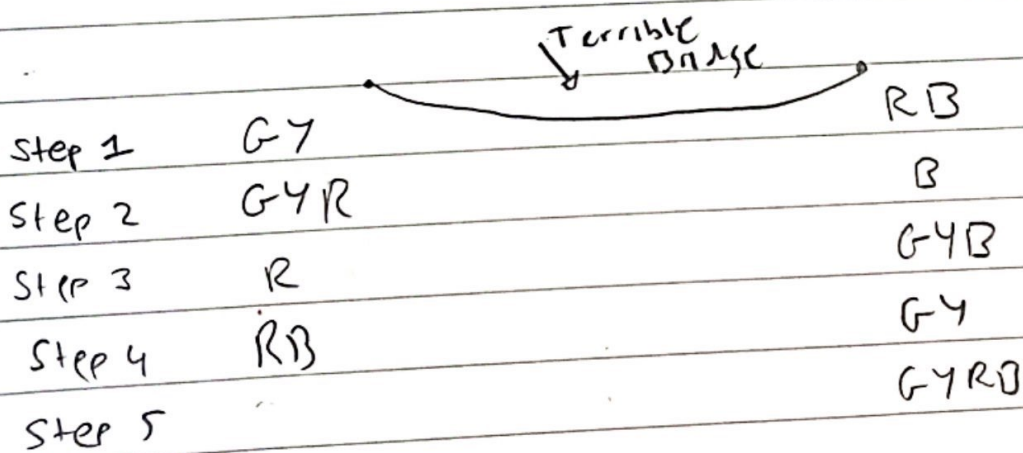 Terrible
Bridge
Step 1 GY RB
Step 2 GYR B
Step 3 R GYB
Step 4 RB GY
Step 5 GYRB